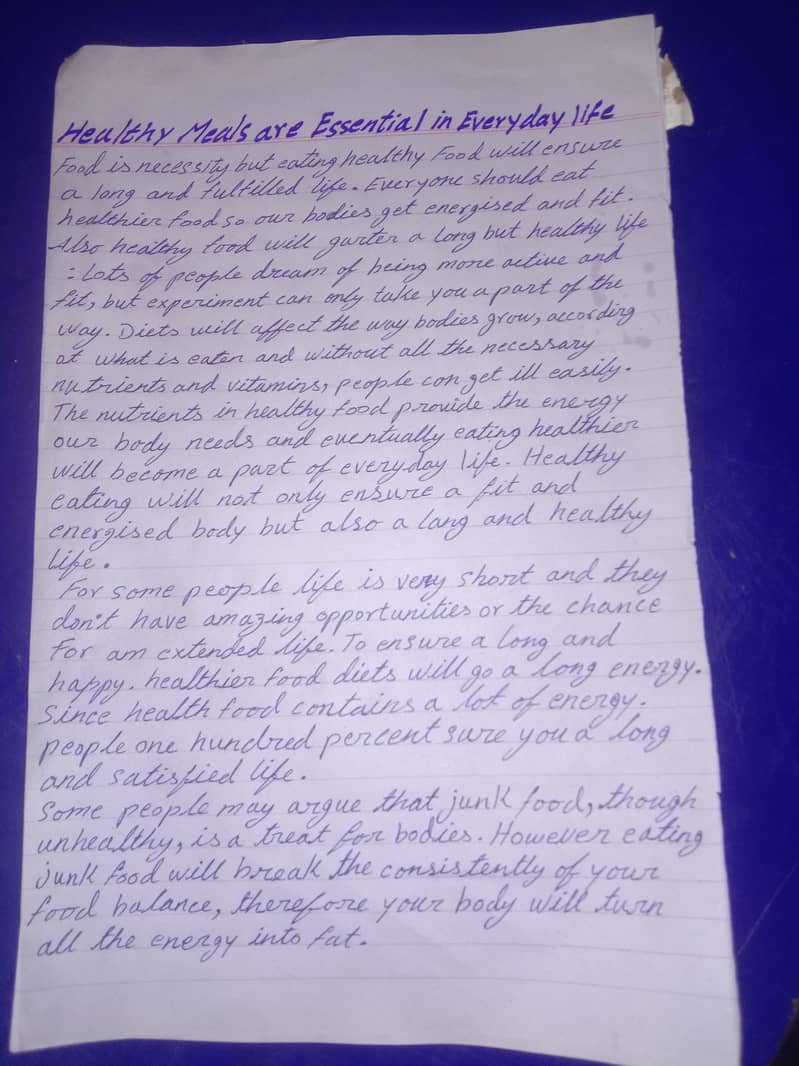 Healthy Meals are Essential in Everyday life
Food is necessity but eating healthy Food will ensure
a long and fulfilled life. Everyone should eat
healthier food so our bodies get energised and fit.
Also healthy food will garter a long but healthy life
: Lots of people dream of being more active and
fit, but experiment can only take you a part of the
way. Diets will affect the way bodies grow, according
at what is eaten and without all the necessary
nutrients and vitamins, people can get ill easily.
The nutrients in healthy food provide the energy
our body needs and eventually eating healthier
will become a part of everyday life. Healthy
eating will not only ensure a fit and
energised body but also a long and healthy
life.
For some people life is very short and they
don't have amazing opportunities or the chance
For am extended life. To ensure a long and
happy. healthier food diets will go a long energy.
Since health food contains a lot of energy.
people one hundred percent sure you a long
and satisfied life.
Some people may argue that junk food, though
unhealthy, is a treat for bodies. However eating
junk food will break the consistently of your
food balance, therefore your body will turn
all the energy into fat.